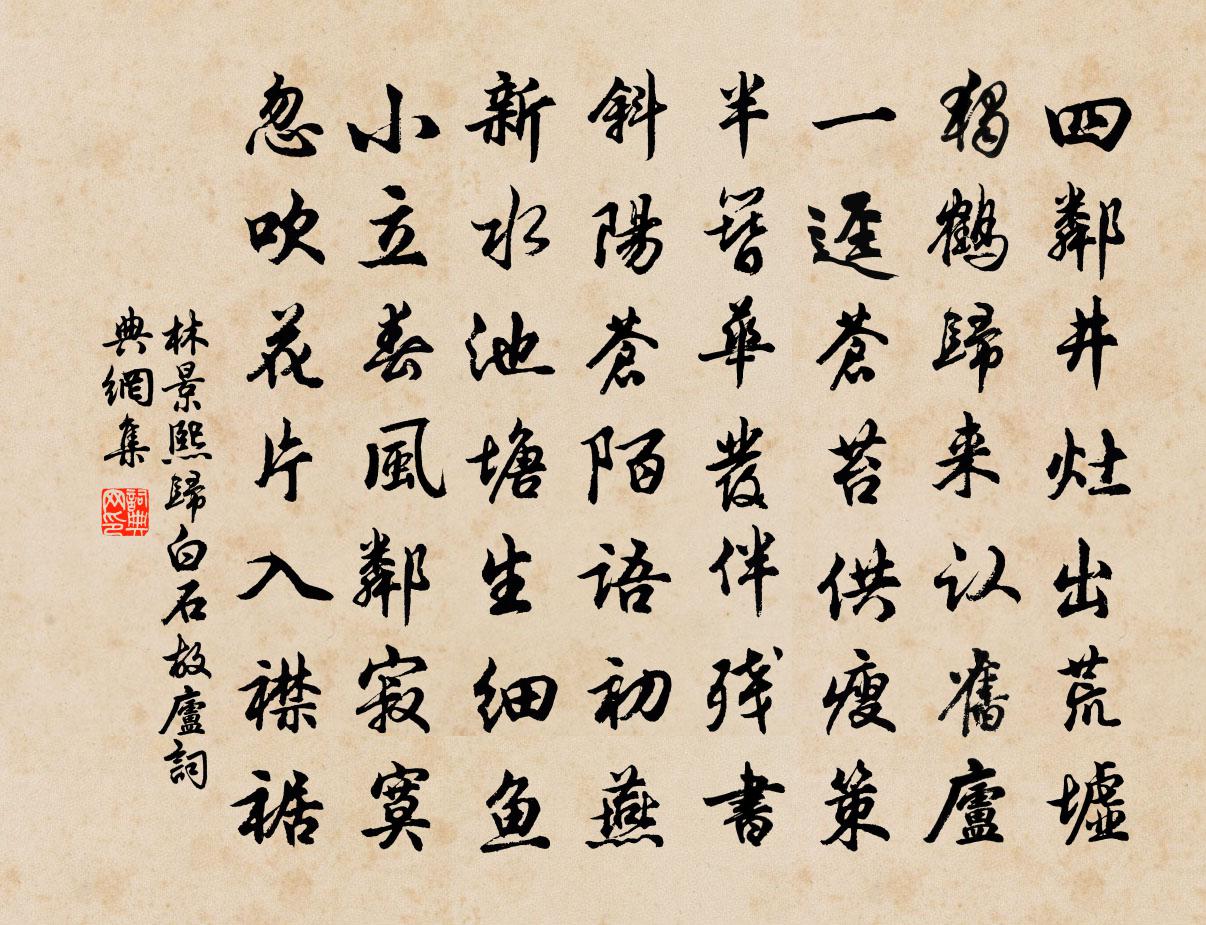 四鄰井灶出荒墟
獨鶴歸来认舊廬
一逕蒼苔供瘦策
半簪華發伴残書
斜陽蒼陌語初燕
新水池塘生细鱼
小立春風鄰寂寞
忽吹花片入襟裾
林景熙歸白石故廬詞
典網集
詞典网印